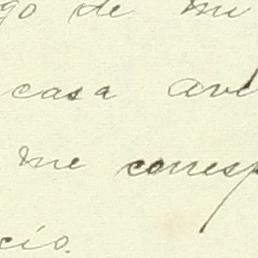 go de mi
casa avi
me corresp
cio.